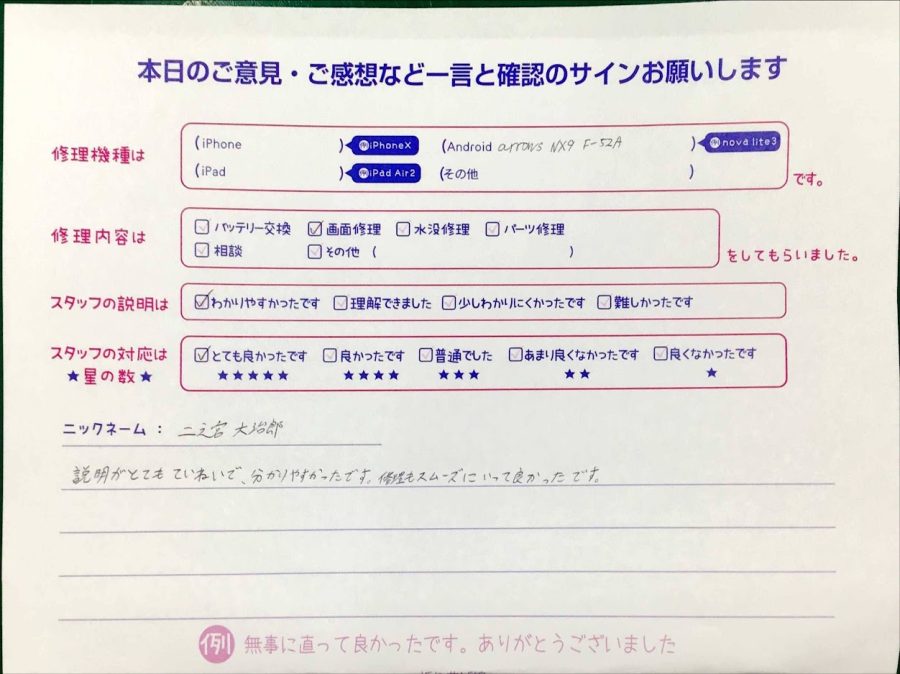 本日のご意見・ご感想など一言と確認のサインお願いします
修理機種は
(iPhone )例iPhoneX (Android arrows NX9 F-52A )例nova lite3
(iPad )例iPad Air2 (その他 )
です。
修理内容は
バッテリー交換 画面修理 水没修理 パーツ修理
相談 その他 ( )
をしてもらいました。
スタッフの説明は わかりやすかったです 理解できました 少しわかりにくかったです 難しかったです
スタッフの対応は とても良かったです 良かったです 普通でした あまり良くなかったです 良くなかったです
★星の数★ ★★★★★ ★★★★ ★★★ ★★ ★
ニックネーム： 二之宮 大治郎
説明がとてもていねいで、分かりやすかったです。修理もスムーズにいって良かったです。
例 無事に直って良かったです。ありがとうございました